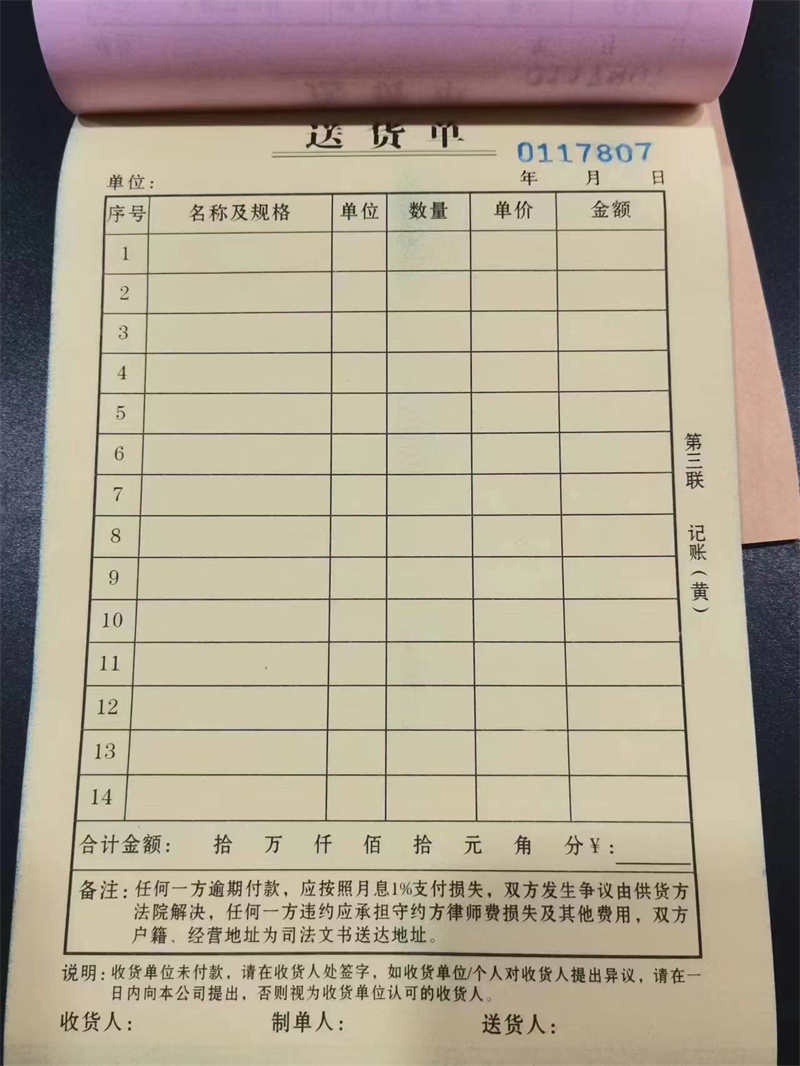 送货单
0117807
单位: 年 月 日
序号 名称及规格 单位 数量 单价 金额
1
2
3
4
5
6
7
8
9
10
11
12
13
14
第三联 记账(黄)
合计金额: 拾 万 仟 佰 拾 元 角 分¥:
备注: 任何一方逾期付款，应按照月息1%支付损失，双方发生争议由供货方
法院解决，任何一方违约应承担守约方律师费损失及其他费用，双方
户籍、经营地址为司法文书送达地址。
说明: 收货单位未付款，请在收货人处签字，如收货单位/个人对收货人提出异议，请在一
日内向本公司提出，否则视为收货单位认可的收货人。
收货人: 制单人: 送货人: